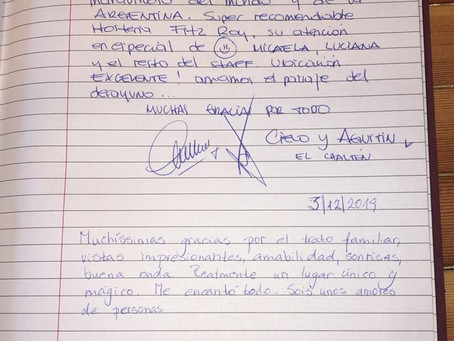 ARGENTINA. Super recomendable
Hostería Fitz Roy, su atención
en especial de MICAELA, LUCIANA
y el resto del STAFF Ubicación
EXCELENTE! amamos el paisaje del
desayuno...
MUCHAS GRACIAS POR TODO
CIELO Y AGUSTIN
EL CHALTÉN
3/12/2019
Muchíssimas gracias por el trato familiar,
vistas impresionantes, amabilidad, sonrisas,
buena onda. Realmente un lugar único y
mágico. Me encantó todo. Sois unos amores
de personas.